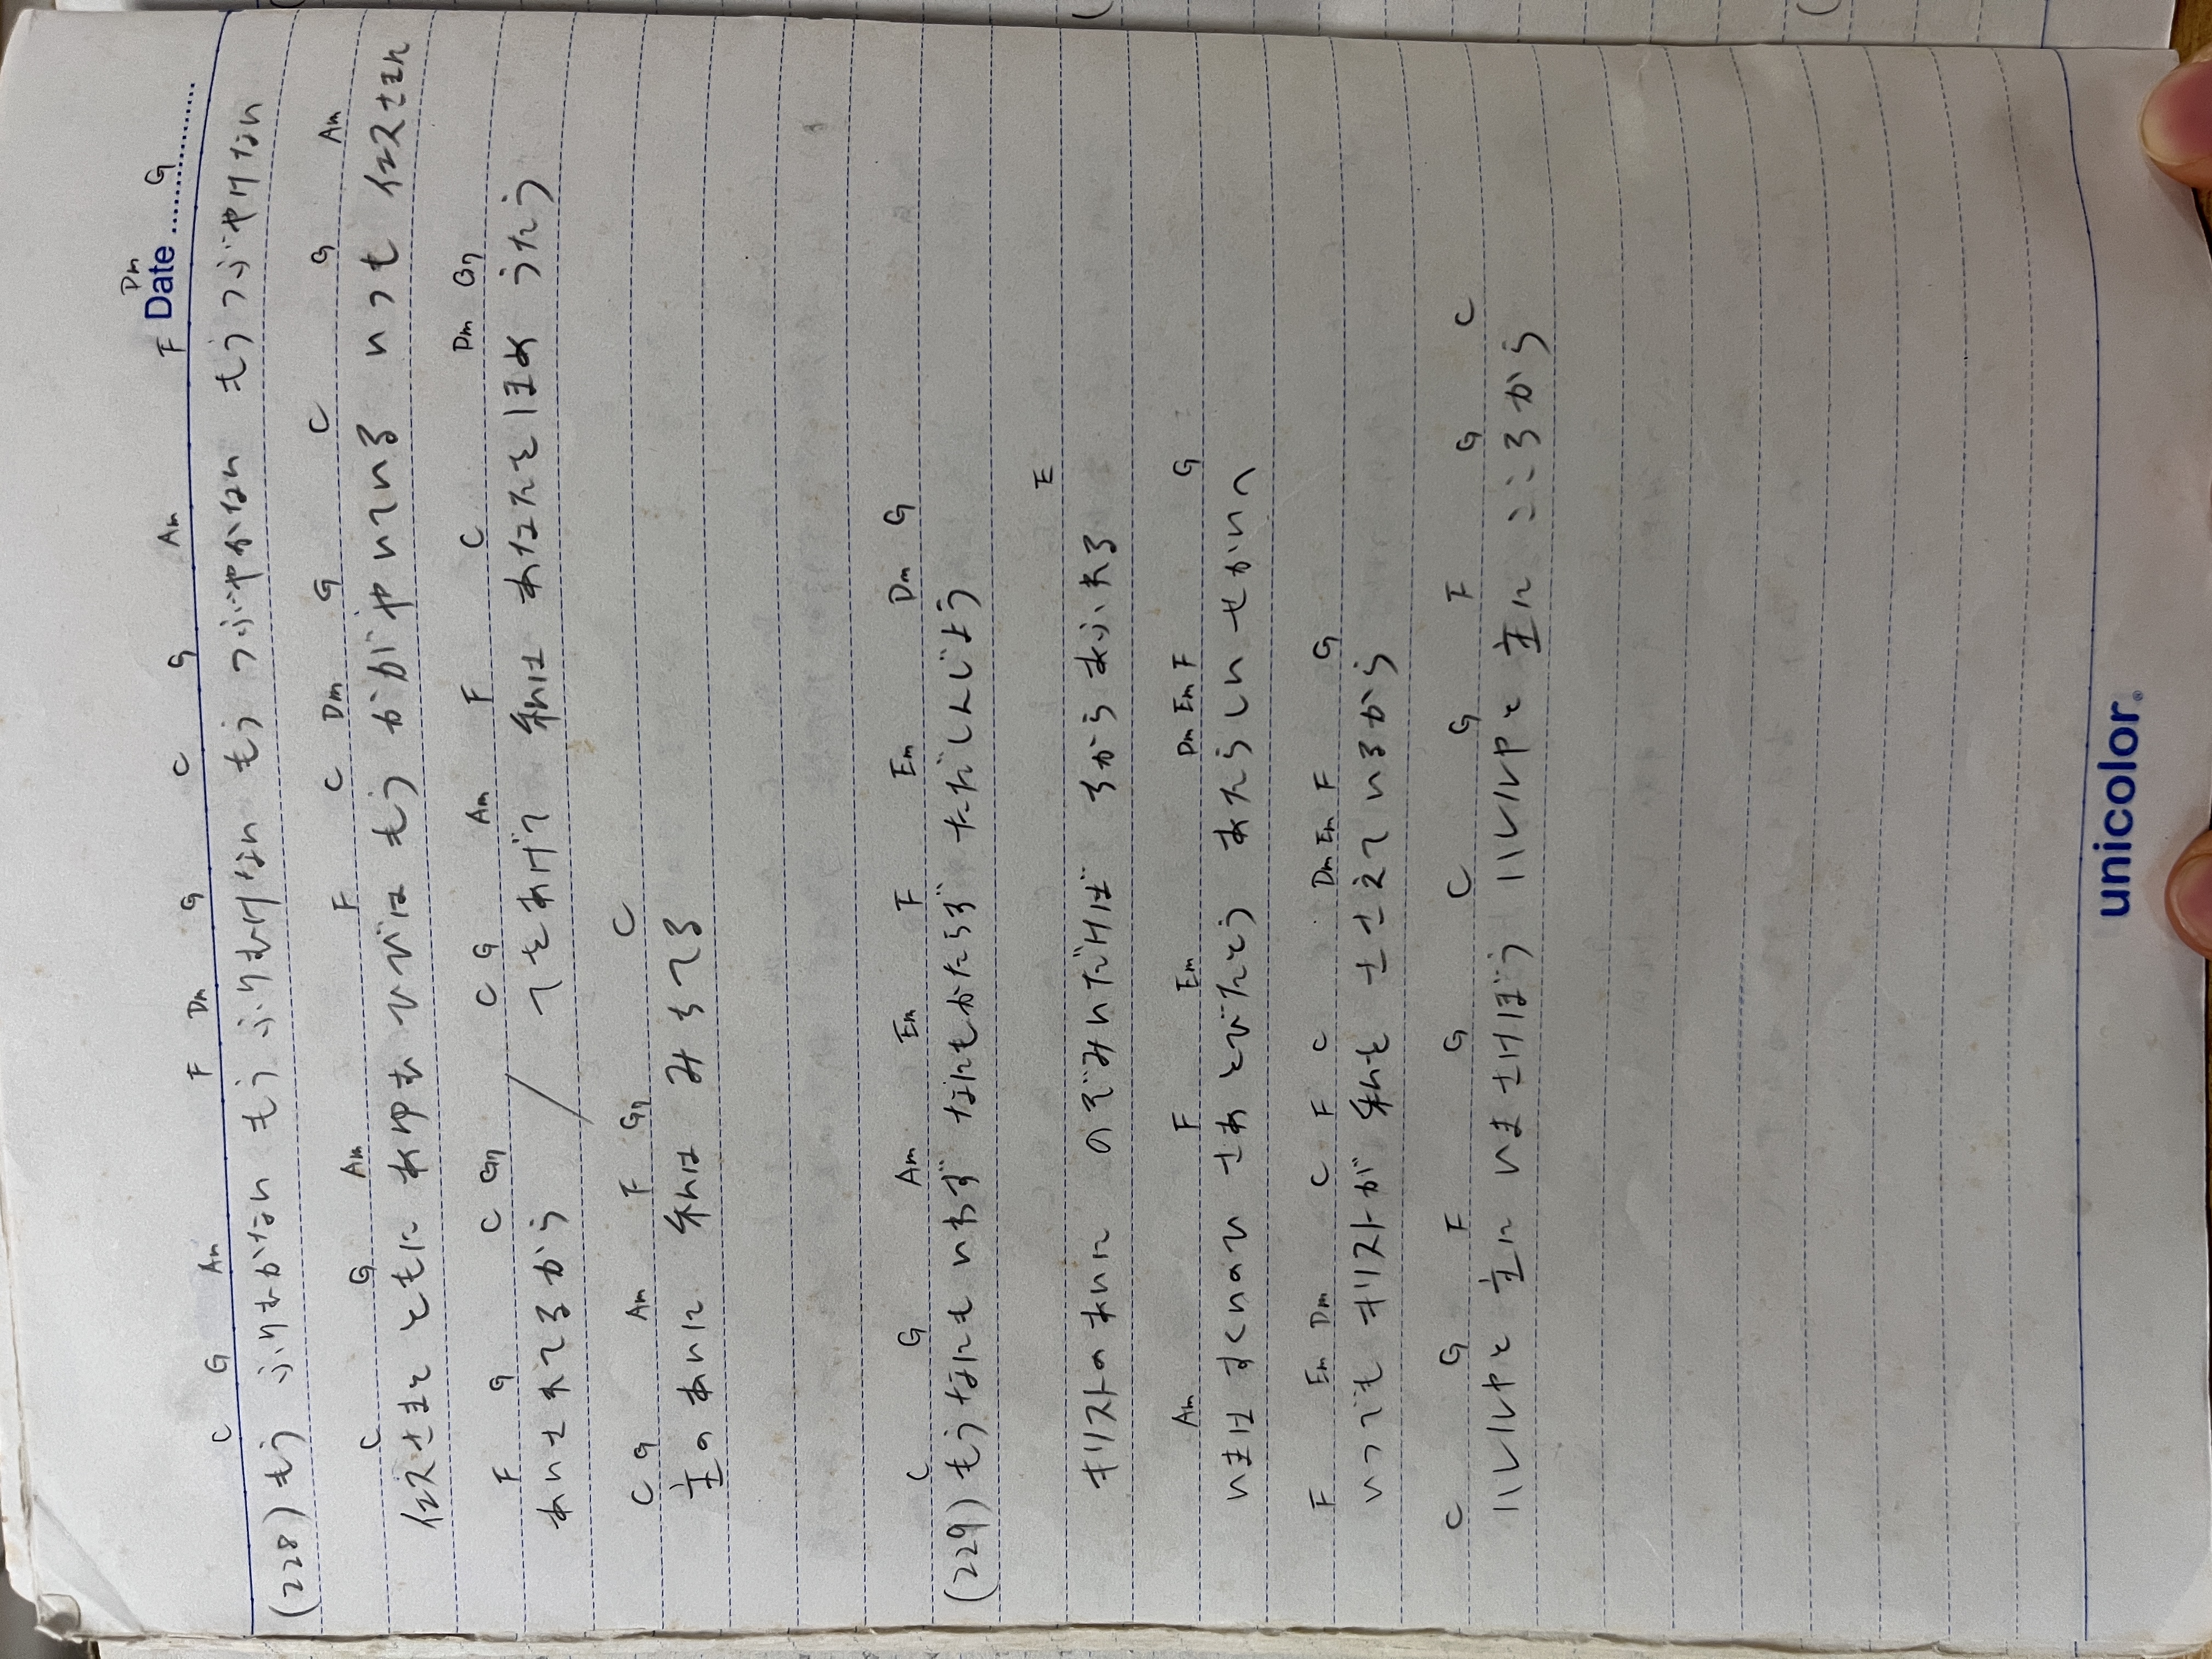 F Dm G
Date
C G Am F Dm G C G Am
(228) もう ふりむかない もう ふりむけない もう つぶやかない もう つぶやけない
C G Am F C Dm G C G Am
イエスさまと ともに あゆむ ひびは もう かがやいている いつも イエスさまに
F G C G7 C G Am F C Dm G7
あいされてるから / てをあげて 私は あなたを ほめ うたう
C G Am F G7 C
主の あいに 私は みちてる
C G Am Em F Em Dm G
(229) もう なにも いわず なにもかたらず ただしんじよう
E
キリストのあいに のぞみいだけば ちから あふれる
Am F Em Dm Em F G
いまは すくいのひ さあ とびたとう あたらしい せかいへ
F Em Dm C F C Dm Em F G
いつでも キリストが 私を ささえて いるから
C G F G C G F G C
ハレルヤと 主に いま さけぼう ハレルヤと 主に こころから
unicolor®